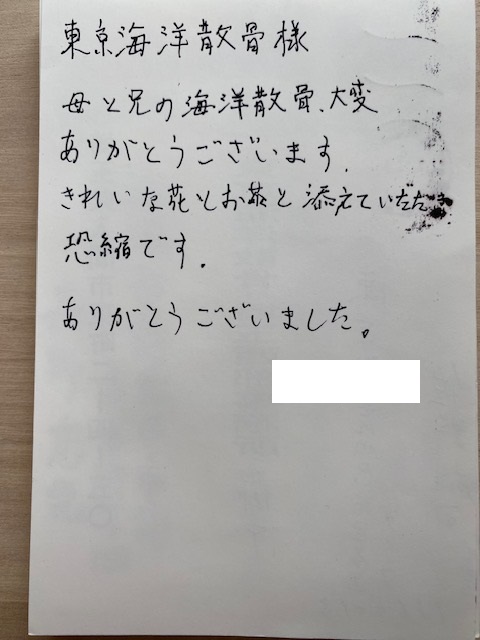 東京海洋散骨様
母と兄の海洋散骨、大変
ありがとうございます.
きれいな花とお茶と添えていだだき
恐縮です.
ありがとうございました。